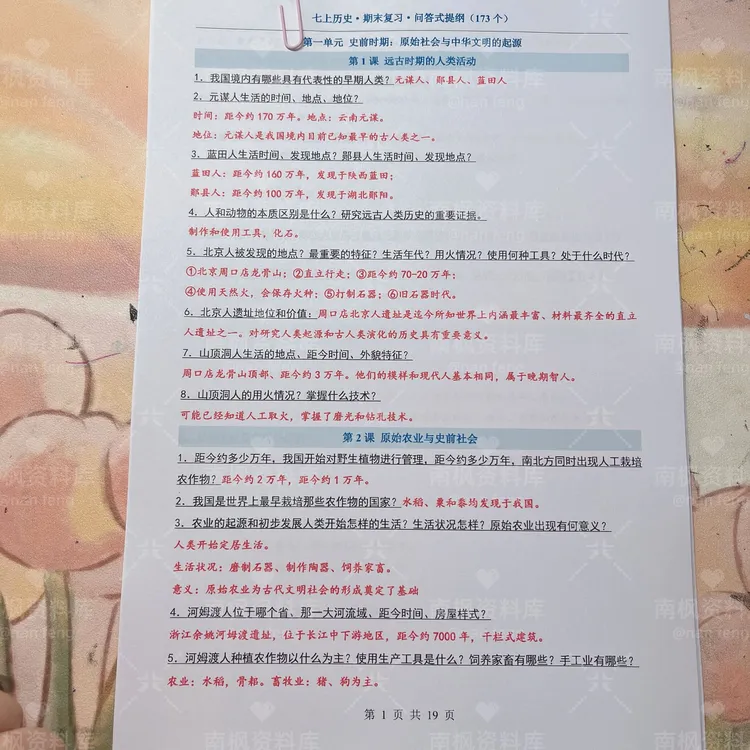 七上历史·期末复习·问答式提纲（173 个）
第一单元 史前时期：原始社会与中华文明的起源
第 1 课 远古时期的人类活动
1、我国境内有哪些具有代表性的早期人类？元谋人、郧县人、蓝田人
2、元谋人生活的时间、地点、地位？
时间：距今约 170 万年。地点：云南元谋。
地位：元谋人是我国境内目前已知最早的古人类之一。
3、蓝田人生活时间、发现地点？郧县人生活时间、发现地点？
蓝田人：距今约 160 万年，发现于陕西蓝田；
郧县人：距今约 100 万年，发现于湖北郧阳。
4、人和动物的本质区别是什么？研究远古人类历史的重要证据。
制作和使用工具，化石。
5、北京人被发现的地点？最重要的特征？生活年代？用火情况？使用何种工具？处于什么时代？
①北京周口店龙骨山；②直立行走；③距今约 70-20 万年；
④使用天然火，会保存火种；⑤打制石器；⑥旧石器时代。
6、北京人遗址地位和价值：周口店北京人遗址是迄今所知世界上内涵最丰富、材料最齐全的直立
人遗址之一。对研究人类起源和古人类演化的历史具有重要意义。
7、山顶洞人生活的地点、距今时间、外貌特征？
周口店龙骨山顶部、距今约 3 万年。他们的模样和现代人基本相同，属于晚期智人。
8、山顶洞人的用火情况？掌握什么技术？
可能已经知道人工取火，掌握了磨光和钻孔技术。
第 2 课 原始农业与史前社会
1、距今约多少万年，我国开始对野生植物进行管理，距今约多少万年，南北方同时出现人工栽培
农作物？距今约 2 万年，距今约 1 万年。
2、我国是世界上最早栽培那些农作物的国家？水稻、粟和黍均发现于我国。
3、农业的起源和初步发展人类开始怎样的生活？生活状况怎样？原始农业出现有何意义？
人类开始定居生活。
生活状况：磨制石器、制作陶器、饲养家畜。
意义：原始农业为古代文明社会的形成奠定了基础
4、河姆渡人位于哪个省、那一大河流域、距今时间、房屋样式？
浙江余姚河姆渡遗址，位于长江中下游地区，距今约 7000 年，干栏式建筑。
5、河姆渡人种植农作物以什么为主？使用生产工具是什么？饲养家畜有哪些？手工业有哪些？
农业：水稻，骨耜。畜牧业：猪、狗为主。
第 1 页 共 19 页
南枫资料库
@nan feng